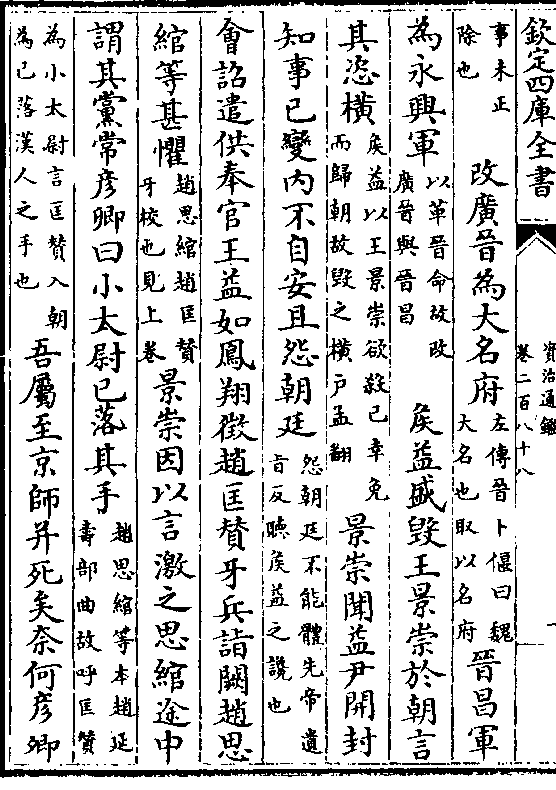 欽定四庫全書
資治通鑑
卷二百八十八
事未正除也改廣晉為大名府左傳晉卜偃曰魏大名也取以名府晉昌軍
為永興軍以革晉命故改廣晉與晉昌侯益盛毀王景崇於朝言
其恣橫侯益以王景崇欲殺己幸免而歸朝故毀之橫户孟翻景崇聞益尹開封
知事已變内不自安且怨朝廷怨朝廷不能體先帝遺旨反聽侯益之讒也
會詔遣供奉官王益如鳳翔徵趙匡贊牙兵詣闕趙思
綰等甚懼趙思綰趙匡贊牙校也見上卷景崇因以言激之思綰途中
謂其黨常彦卿曰小太尉已落其手趙思綰等本趙延壽部曲故呼匡贊
為小太尉言匡贊入朝為已落漢人之手也吾屬至京師并死矣奈何彦卿